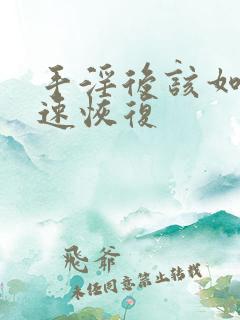 手淫後該如
速恢復
飛爺
未经同意禁止转载